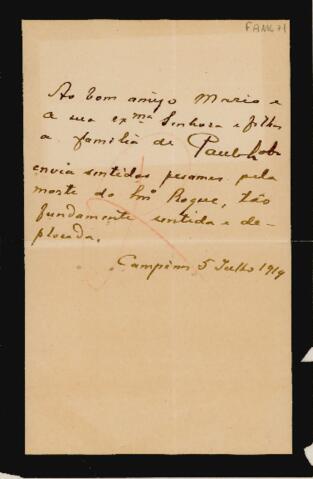 Ao bom amigo Mario e
a sua exma Senhora e filhos
a familia de Paulo Lobo
envia sentidos pesames pela
morte do Im° Roque, tão
fundamente sentida e de-
plorada.
Campinas 5 Julho 1919